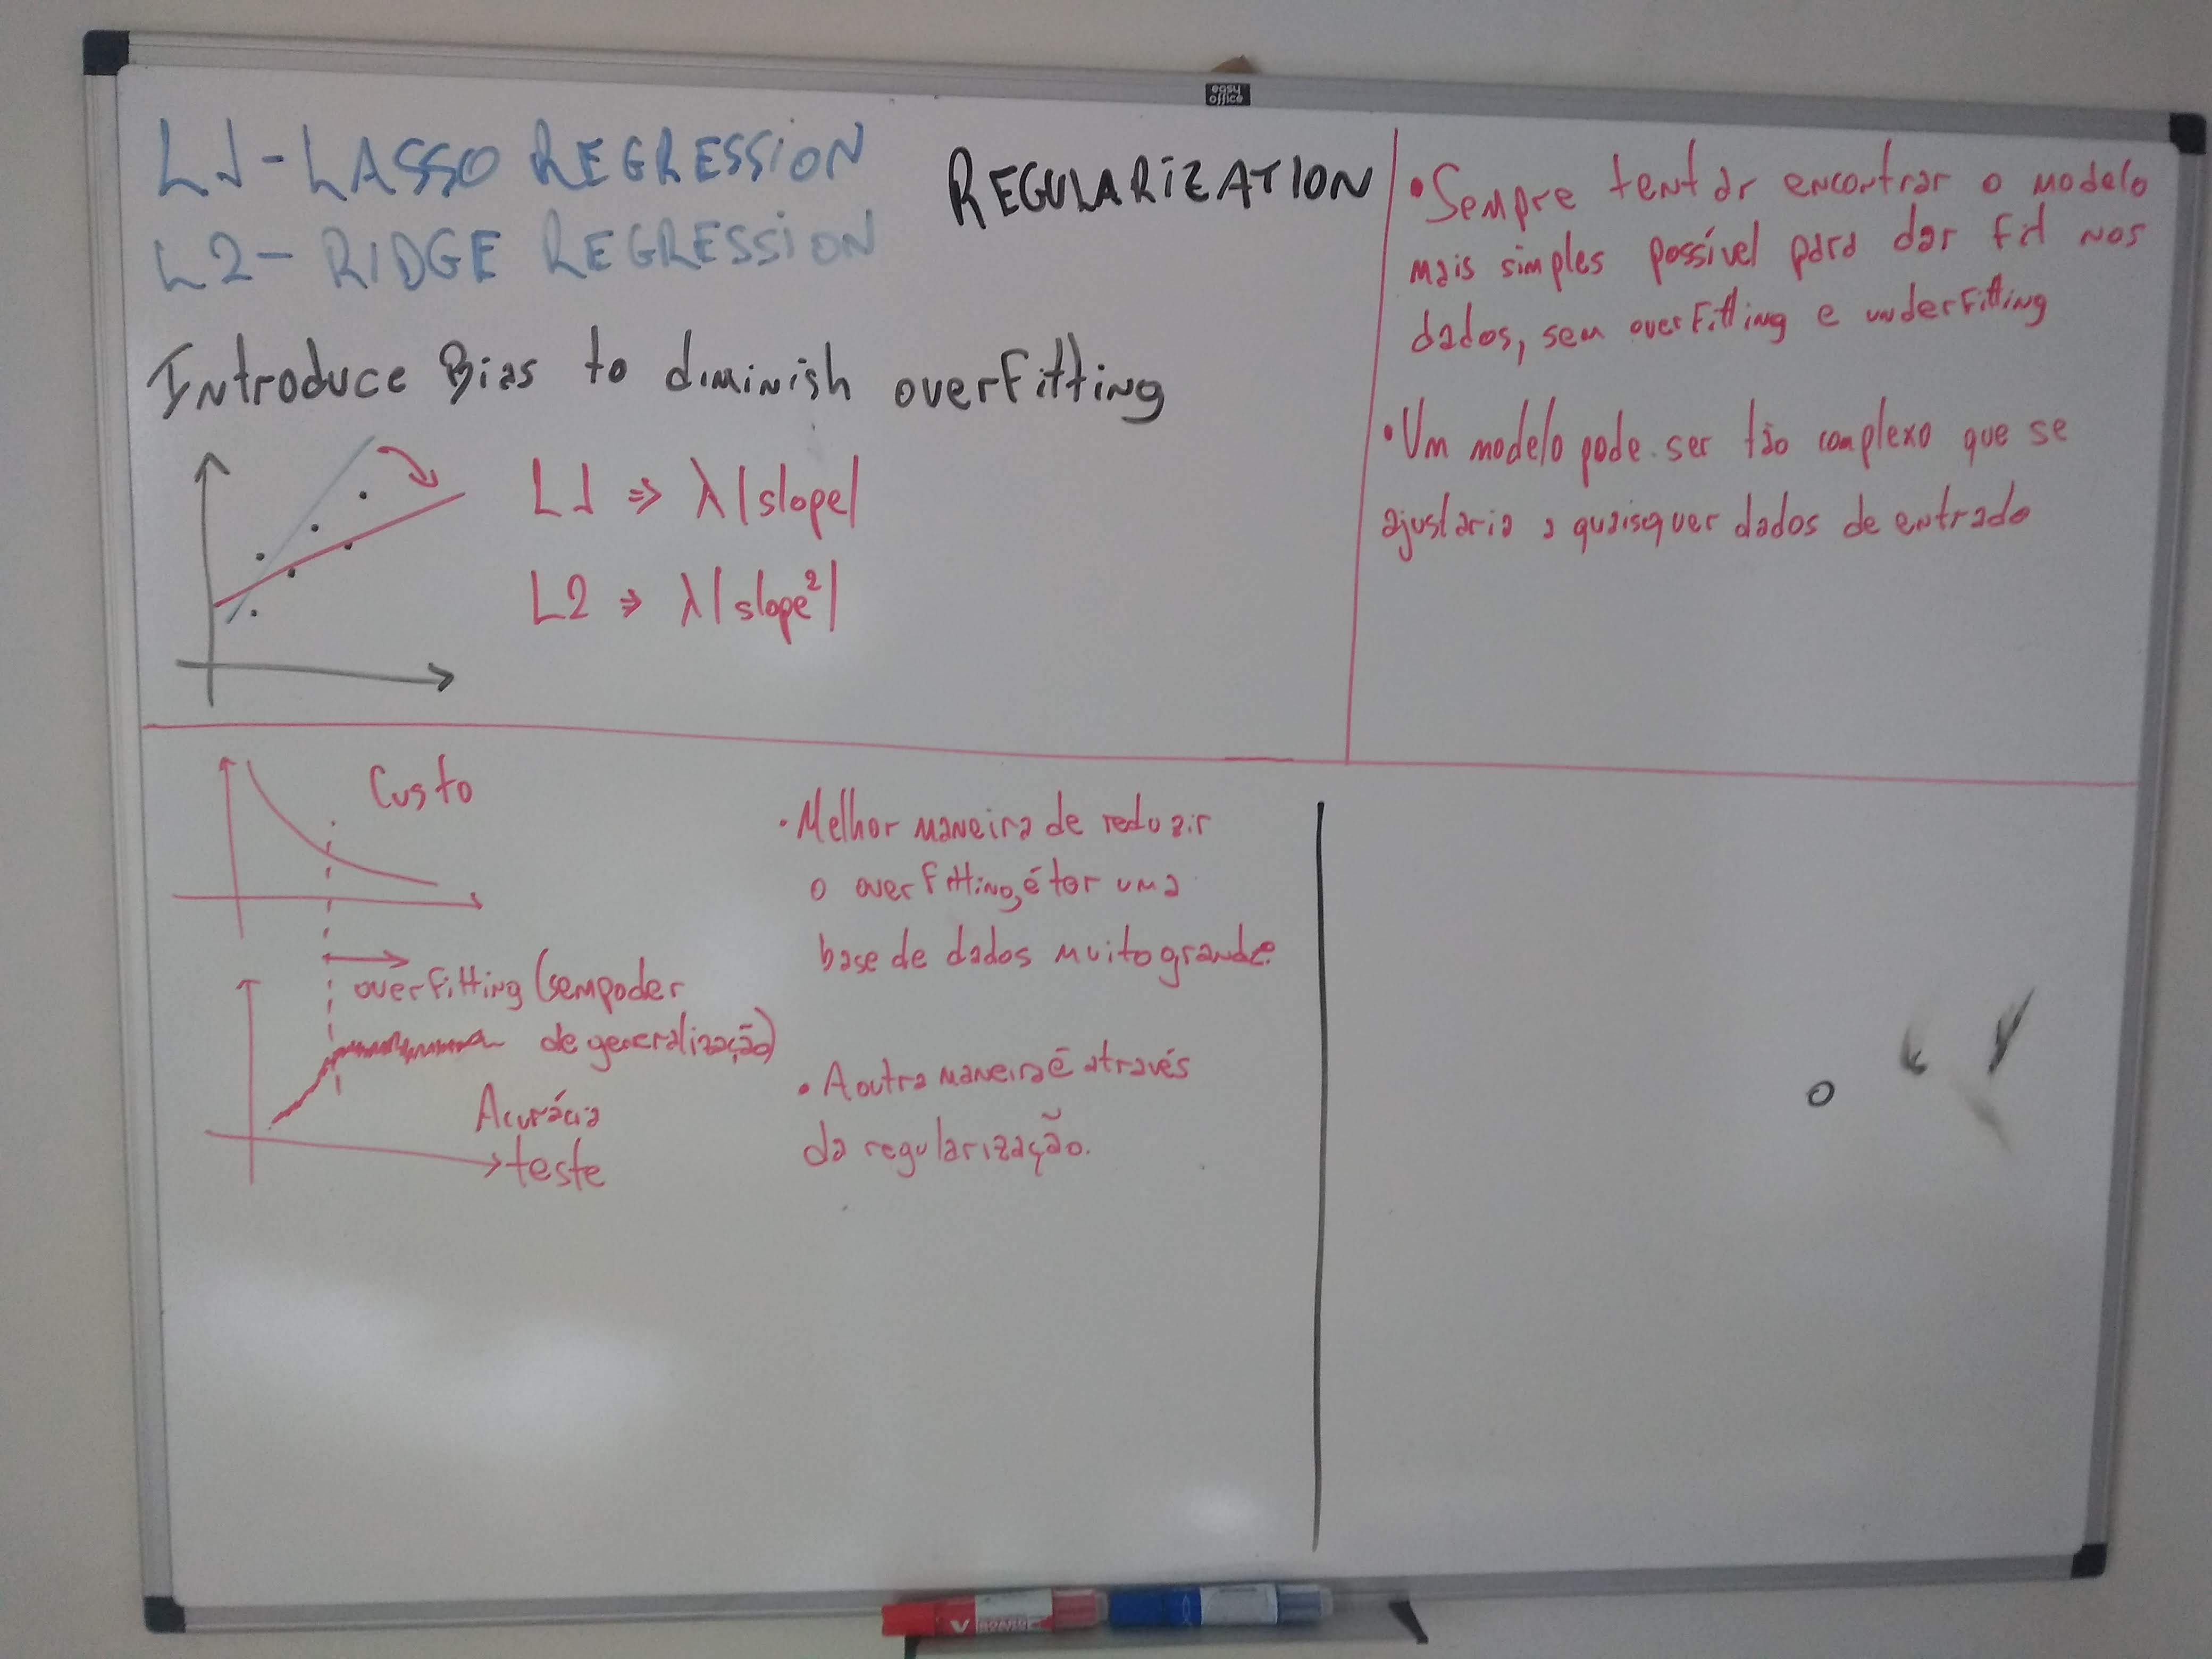 easy office
L1-LASSO REGRESSION
L2-RIDGE REGRESSION
REGULARIZATION
Introduce Bias to diminish overfitting
L1 ⇒ λ|slope|
L2 ⇒ λ|slope²|
• Sempre tentar encontrar o modelo
mais simples possível para dar fit nos
dados, sem overfitting e underfitting
• Um modelo pode ser tão complexo que se
ajustaria a quaisquer dados de entrada
Custo
overfitting (sem poder
de generalização)
Acurácia
teste
• Melhor maneira de reduzir
o overfitting, é ter uma
base de dados muito grande.
• A outra maneira é através
da regularização.
o
V BOARD